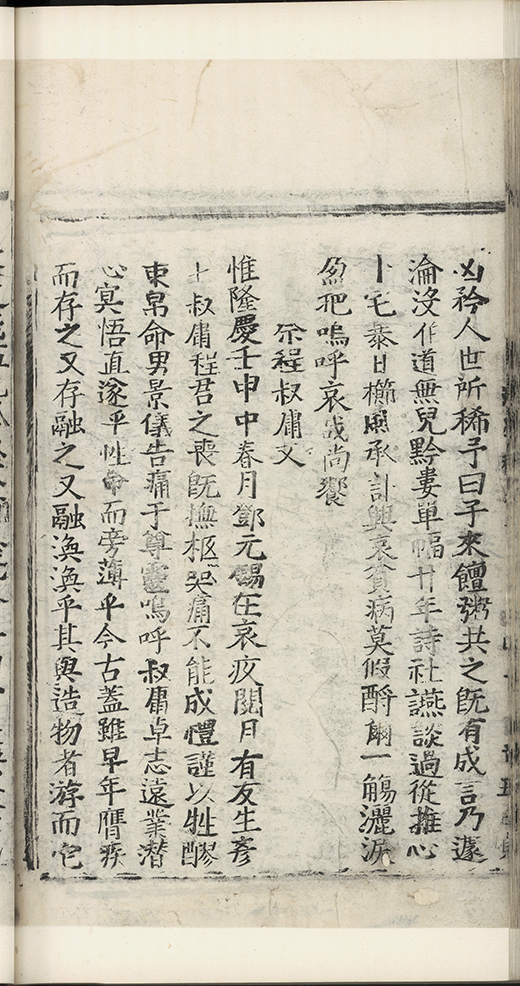 凶矜人世所稀予曰子來饘粥共之旣有成言乃遽
淪沒作道無兒黔婁單幅廿年詩社讌談過從摧心
卜宅泰日櫛風承訃興哀貧病莫假酹爾一觴灑淚
盈把嗚呼哀哉尚饗
祭程叔庸文
惟隆慶壬申中春月鄧元錫在哀疚閱月有友生彥
士叔庸程君之喪旣撫柩哭痛不能成禮謹以牲醪
束帛命男景儀告痛于尊靈嗚呼叔庸卓志遠業潛
心冥悟直遂乎性命而旁薄乎今古蓋雖早年膺疾
而存之又存融之又融渙渙乎其與造物者游而它